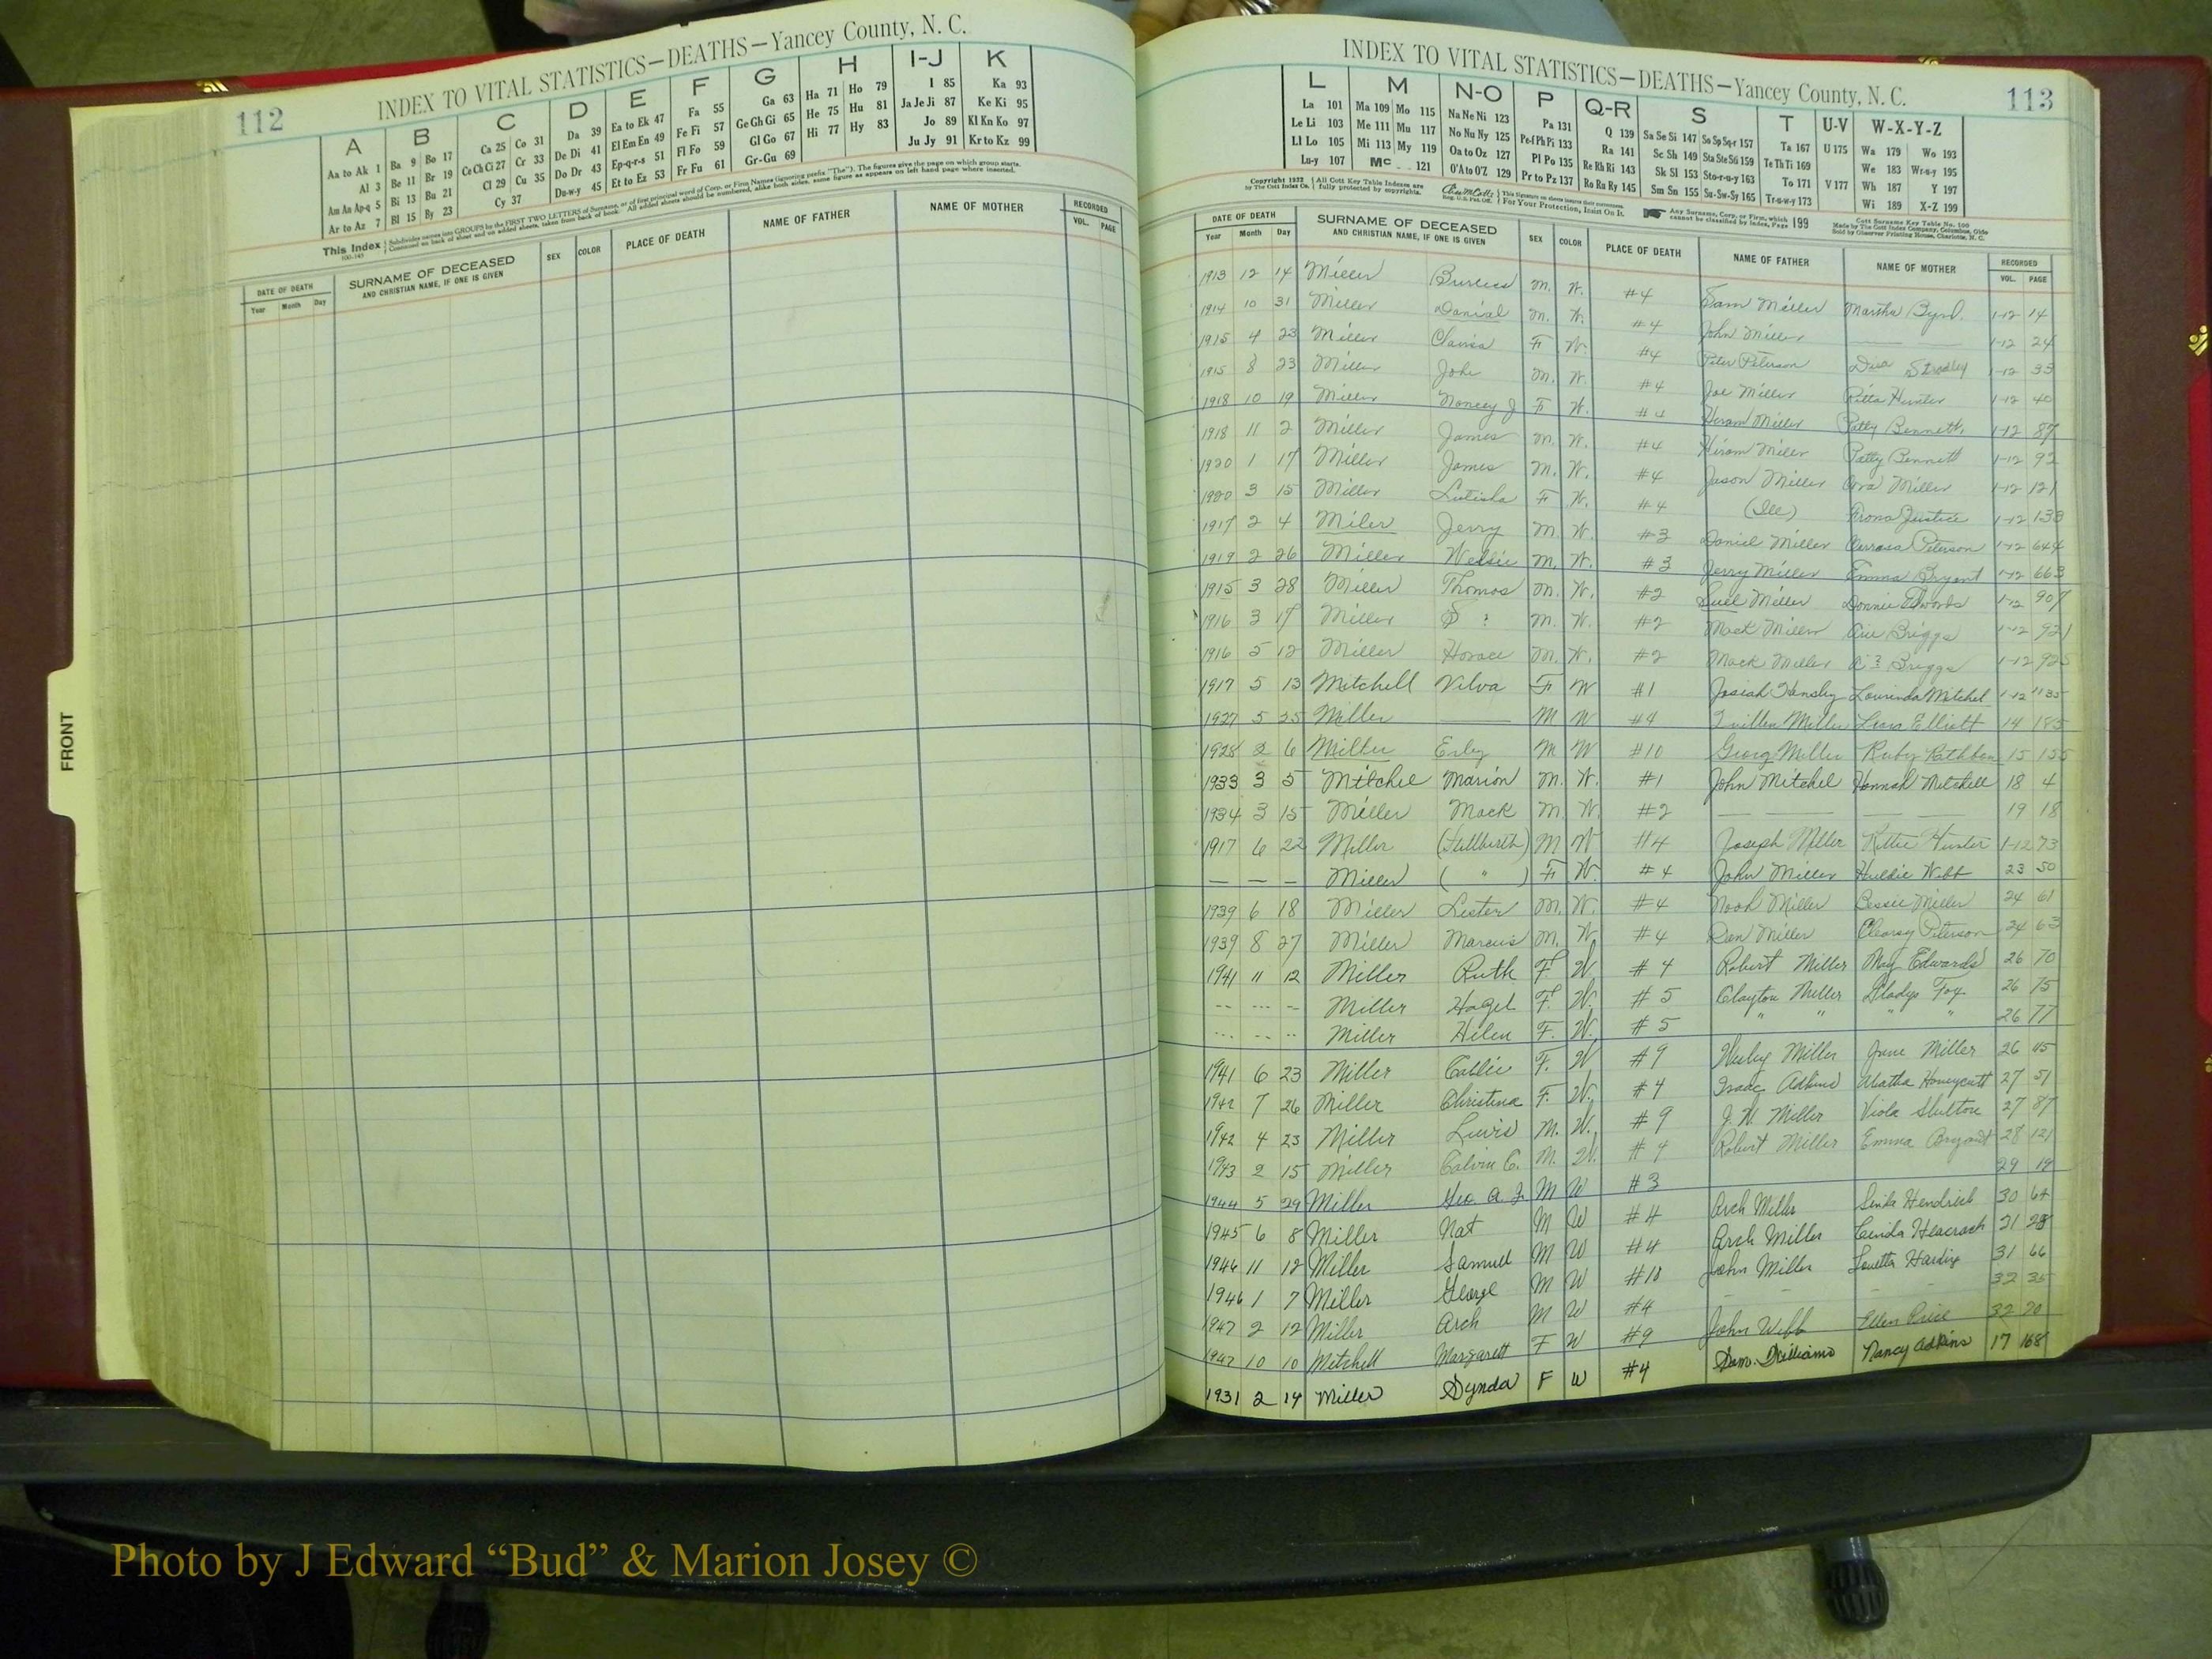 112
INDEX TO VITAL STATISTICS—DEATHS—Yancey County, N. C.
A B C D E F G H I-J K
Aa to Ak 1 Ba 9 Bo 17 Ca 25 Co 31 Da 39 Ea to Ek 47 Fa 55 Ga 63 Ha 71 Ho 79 I 85 Ka 93
Al 3 Be 11 Br 19 Ce Ch Ci 27 Cr 33 De Di 41 El Em En 49 Fe Fi 57 Ge Gh Gi 65 He 75 Hu 81 Ja Je Ji 87 Ke Ki 95
Am An Ap-q 5 Bi 13 Bu 21 Cl 29 Cu 35 Do Dr 43 Ep-q-r-s 51 Fl Fo 59 Gl Go 67 Hi 77 Hy 83 Jo 89 Kl Kn Ko 97
Ar to Az 7 Bl 15 By 23 Cy 37 Du-w-y 45 Et to Ez 53 Fr Fu 61 Gr-Gu 69 Ju Jy 91 Kr to Kz 99
This Index Subdivides names into GROUPS by the FIRST TWO LETTERS of Surname, or of first principal word of Corp. or Firm Names (ignoring prefix "The"). The figures give the page on which group starts.
Continued on back of sheet and on added sheets, taken from back of book. All added sheets should be numbered, alike both sides, same figure as appears on left hand page where inserted.
DATE OF DEATH SURNAME OF DECEASED SEX COLOR PLACE OF DEATH NAME OF FATHER NAME OF MOTHER RECORDED
Year Month Day AND CHRISTIAN NAME, IF ONE IS GIVEN VOL. PAGE
FRONT
INDEX TO VITAL STATISTICS—DEATHS—Yancey County, N. C. 113
L M N-O P Q-R S T U-V W-X-Y-Z
La 101 Ma 109 Mo 115 Na Ne Ni 123 Pa 131 Q 139 Sa Se Si 147 So Sp Sq-r 157 Ta 167 U 175 Wa 179 Wo 193
Le Li 103 Me 111 Mu 117 No Nu Ny 125 Pe-f Ph Pi 133 Ra 141 Sc Sh 149 Sta Ste Sti 159 Te Th Ti 169 We 183 Wr-u-y 195
Ll Lo 105 Mi 113 My 119 Oa to Oz 127 Pl Po 135 Re Rh Ri 143 Sk Sl 153 Sto-r-u-y 163 To 171 V 177 Wh 187 Y 197
Lu-y 107 Mc 121 O'A to O'Z 129 Pr to Pz 137 Ro Ru Ry 145 Sm Sn 155 Su-Sw-Sy 165 Tr-u-w-y 173 Wi 189 X-Z 199
Copyright 1932 All Cott Key Table Indexes are fully protected by copyrights. For Your Protection, Insist On It. Any Surname, Corp. or Firm, which cannot be classified by Index, Page 199
by The Cott Index Co.
Cott Surname Key Table No. 100
Made by The Cott Index Company, Columbus, Ohio
Sold by Observer Printing House, Charlotte, N. C.
DATE OF DEATH SURNAME OF DECEASED SEX COLOR PLACE OF DEATH NAME OF FATHER NAME OF MOTHER RECORDED
Year Month Day AND CHRISTIAN NAME, IF ONE IS GIVEN VOL. PAGE
1913 12 14 Miller M. W. #4 Sam Miller Martha Byrd. 1-12 14
1914 10 31 Miller Danial M. W. #4 John Miller 1-12 24
1915 4 23 Miller F W. #4 Peter Peterson Stradley 1-12 33
1915 8 23 Miller John M. W. #4 Joe Miller Hunter 1-12 40
1918 10 19 Miller Noncey J F W. #4 Hiram Miller Patty Bennett 1-12 87
1918 11 2 Miller James M. W. #4 Hiram Miller Patty Bennett 1-12 92
1920 1 17 Miller James M. W. #4 Jason Miller Ora Miller 1-12 121
1920 3 15 Miller Lutisha F W. #4 Justice 1-12 133
1917 2 4 Miler Jerry M W. #3 Daniel Miller Peterson 1-12 644
1919 2 26 Miller M. W. #3 Jerry Miller Emma Bryant 1-12 663
1915 3 28 Miller Thomas M. W. #2 Miller Donnie Edwards 1-12 907
1916 3 17 Miller ? M. W. #2 Mack Miller Briggs 1-12 921
1916 5 12 Miller Horace M. W. #2 Mack Miller Briggs 1-12 925
1917 5 13 Mitchell Vilva F W #1 Josiah Hensley Lourinda Mitchel 1-12 1135
1927 5 25 Miller —— M W #4 Miller Elliott 14 183
1928 2 6 Miller Erby M W #10 Georg Miller Ruby Rathbon 15 155
1933 3 5 Mitchel Marion M. W. #1 John Mitchel Hannah Mitchell 18 4
1934 3 15 Miller Mack M W. #2 — — — — 19 18
1917 6 22 Miller (Stillbirth) M W #4 Joseph Miller Kittie Hunter 1-12 73
— — — Miller ( " ) F W. #4 John Miller Huldie Webb 23 50
1939 6 18 Miller Lester M. W. #4 Noah Miller Bessie Miller 24 61
1939 8 27 Miller Marcus M. W #4 Dan Miller Peterson 24 63
1941 11 12 Miller Ruth F W #4 Robert Miller May Edwards 26 70
-- -- -- Miller Hazel F. W. #5 Clayton Miller Gladys Fox 26 75
-- -- -- Miller Helen F. W. #5 " " " " 26 77
1941 6 23 Miller Callie F. W #9 Wesley Miller Jane Miller 26 45
1942 7 26 Miller Christina F. W. #4 Isaac Adkins Honeycutt 27 51
1942 4 23 Miller Lewis M. W. #9 J. W. Miller Viola Shelton 27 87
1943 2 15 Miller Calvin C. M. W. #4 Robert Miller Emma Bryant 28 121
1944 5 29 Miller Geo. A. J. M W #3 29 19
1945 6 8 Miller Nat M W #4 Arch Miller 30 64
1946 11 12 Miller Samuel M W #4 Arch Miller 31 28
1946 1 7 Miller George M W #10 John Miller Louetta 31 66
1947 2 12 Miller Arch M W #4 - - - 32 35
1947 10 10 Mitchell Margarett F W #9 John Webb Ellen Price 32 70
1931 2 14 Miller Synda F W #4 Sam. Williams Nancy Adkins 17 168
Photo by J Edward “Bud” & Marion Josey ©